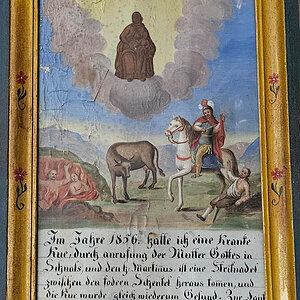 Im Jahre 1856. hatte ich eine Kranke
Kue, durch anrufung der Mutter Gottes in
Schnals, und den h. Martinus ist eine Stecknadel
zwischen den fodern Schenkel heraus komen, und
die Kue wurde gleich wiederum Gesund.